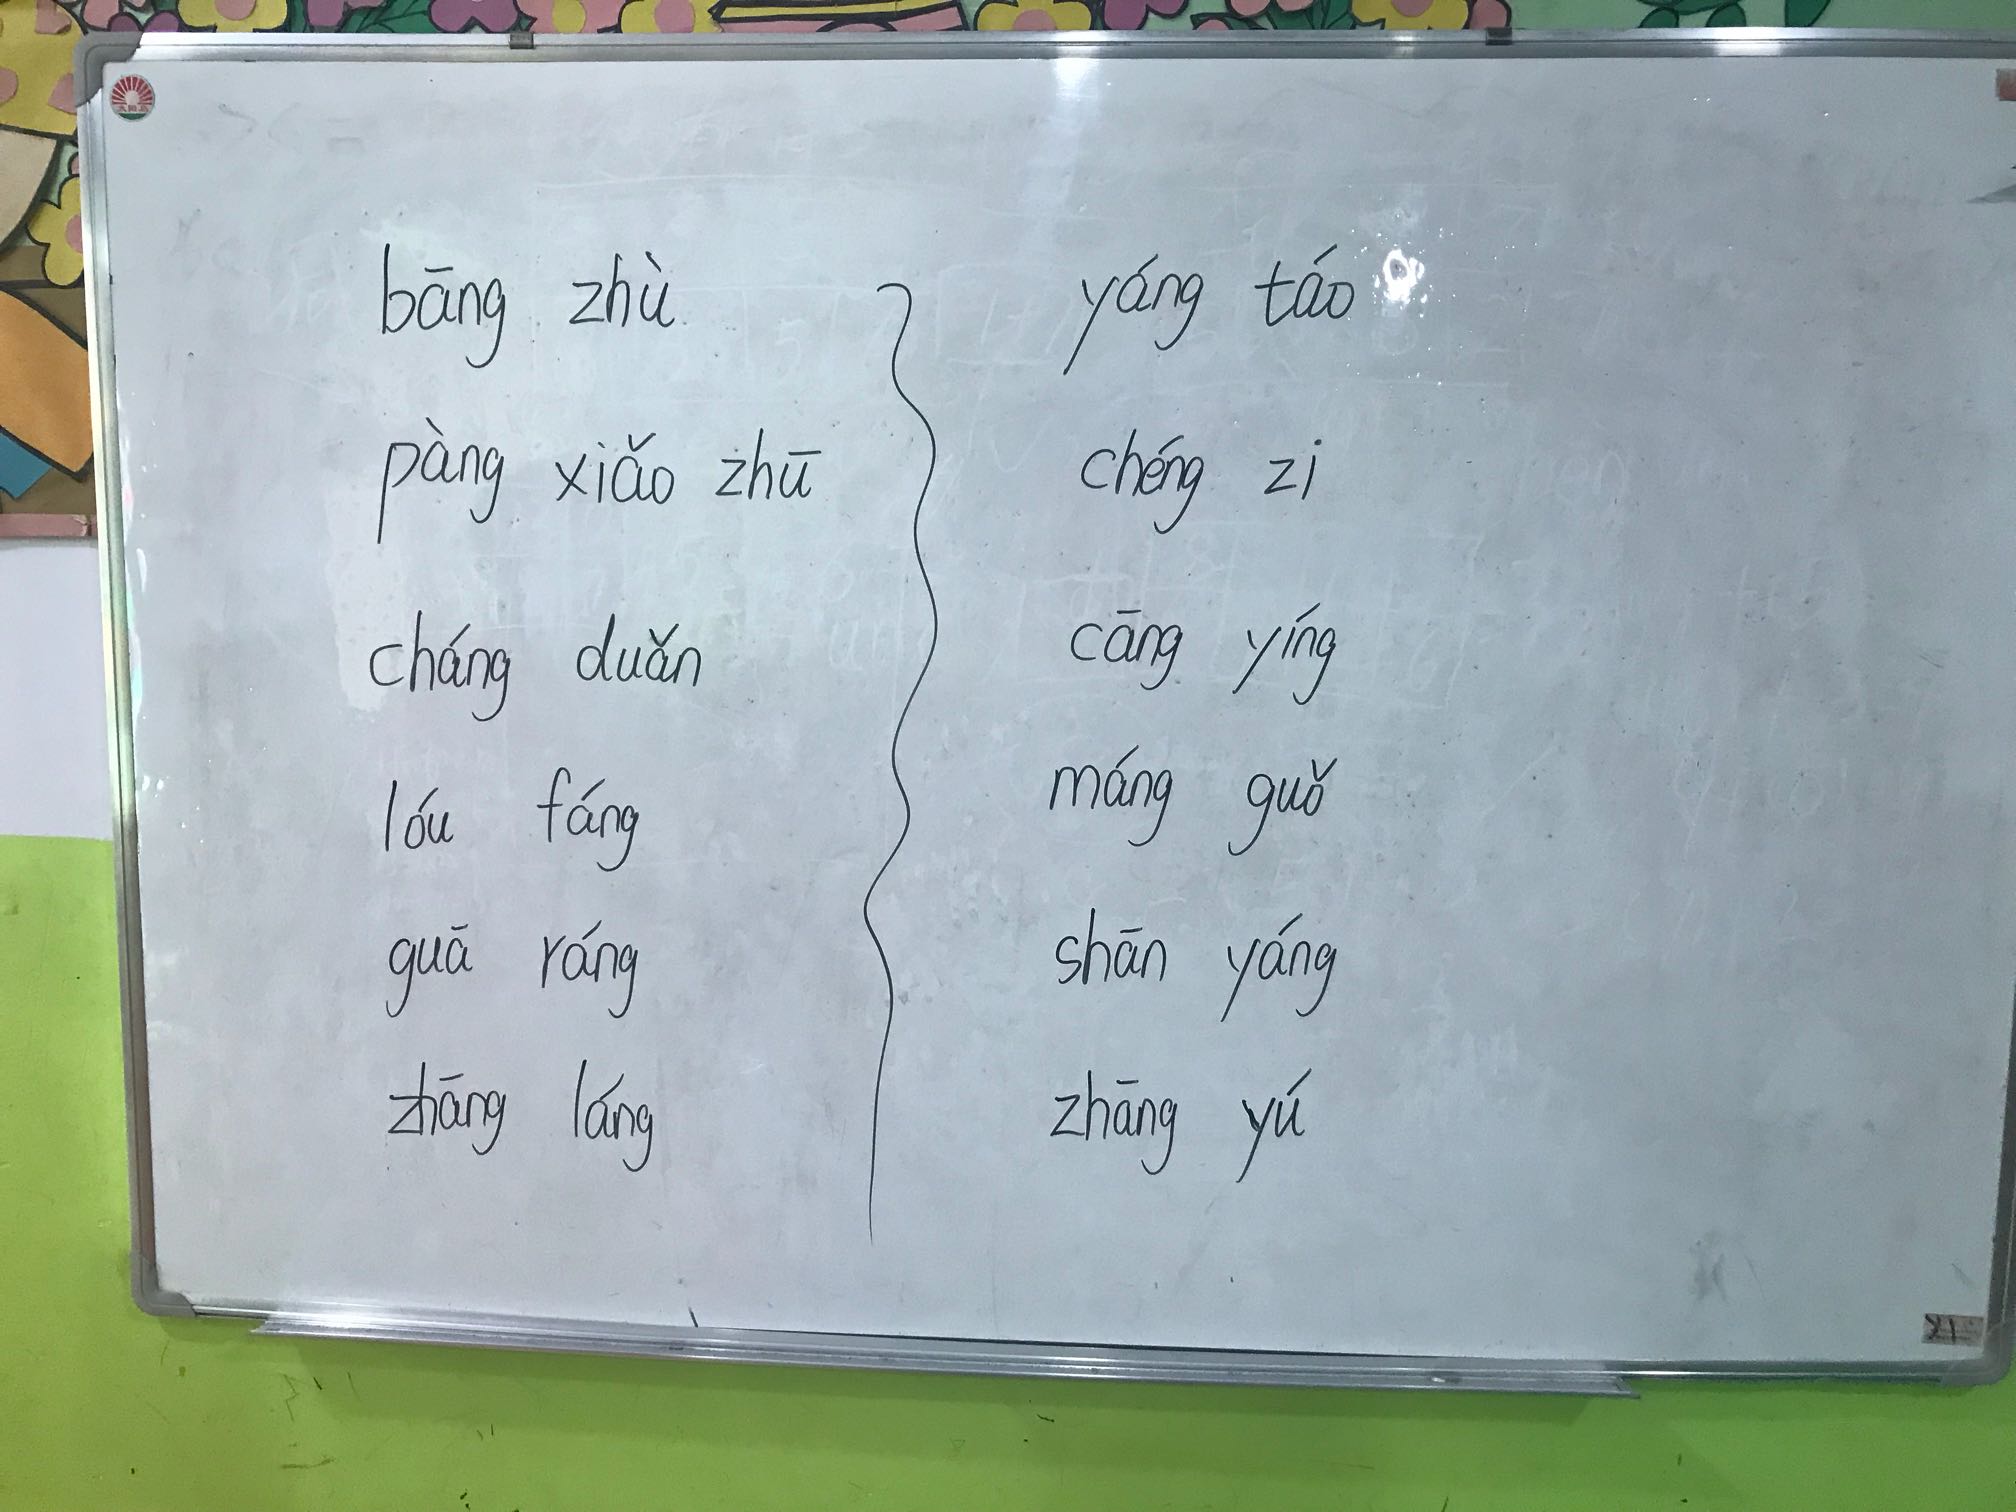 bāng zhù
pàng xiǎo zhū
cháng duǎn
lóu fáng
guā ráng
zhāng láng
yáng táo
chéng zi
cāng yíng
máng guǒ
shān yáng
zhāng yú